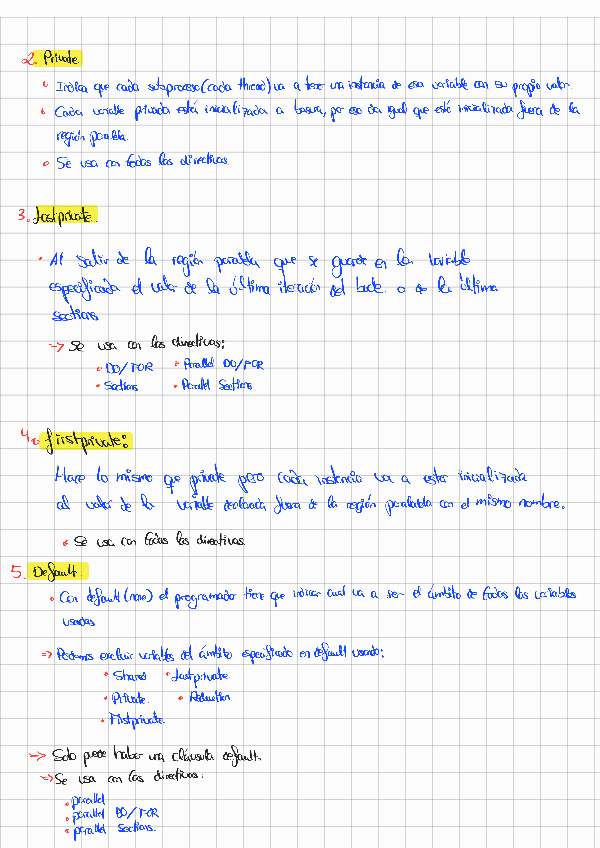 2. Private
• Indica que cada subproceso (cada thread) va a tener una instancia de esa variable con su propio valor.
• Cada variable privada está inicializada a basura, por eso da igual que esté inicializada fuera de la
región paralela.
• Se usa con todas las directivas
3. Lastprivate.
• Al salir de la región paralela que se guarde en la variable
especificada el valor de la última iteración del bucle. o de la última
sections
-> Se usa con las directivas:
• DO/FOR • Parallel DO/FOR
• Sections • Parallel Sections
4. firstprivate:
Hace lo mismo que private pero cada instancia va a estar inicializada
al valor de la variable declarada fuera de la región paralela con el mismo nombre.
• Se usa con todas las directivas.
5. Default.
• Con default (none) el programador tiene que indicar cual va a ser el ámbito de todas las variables
usadas
=> Podemos excluir variables del ámbito especificado en default usando:
• Shared • Lastprivate
• Private. • Reduction
• Firstprivate.
-> Solo puede haber una cláusula default.
=> Se usa con las directivas:
• parallel
• parallel DO/FOR
• parallel Sections.